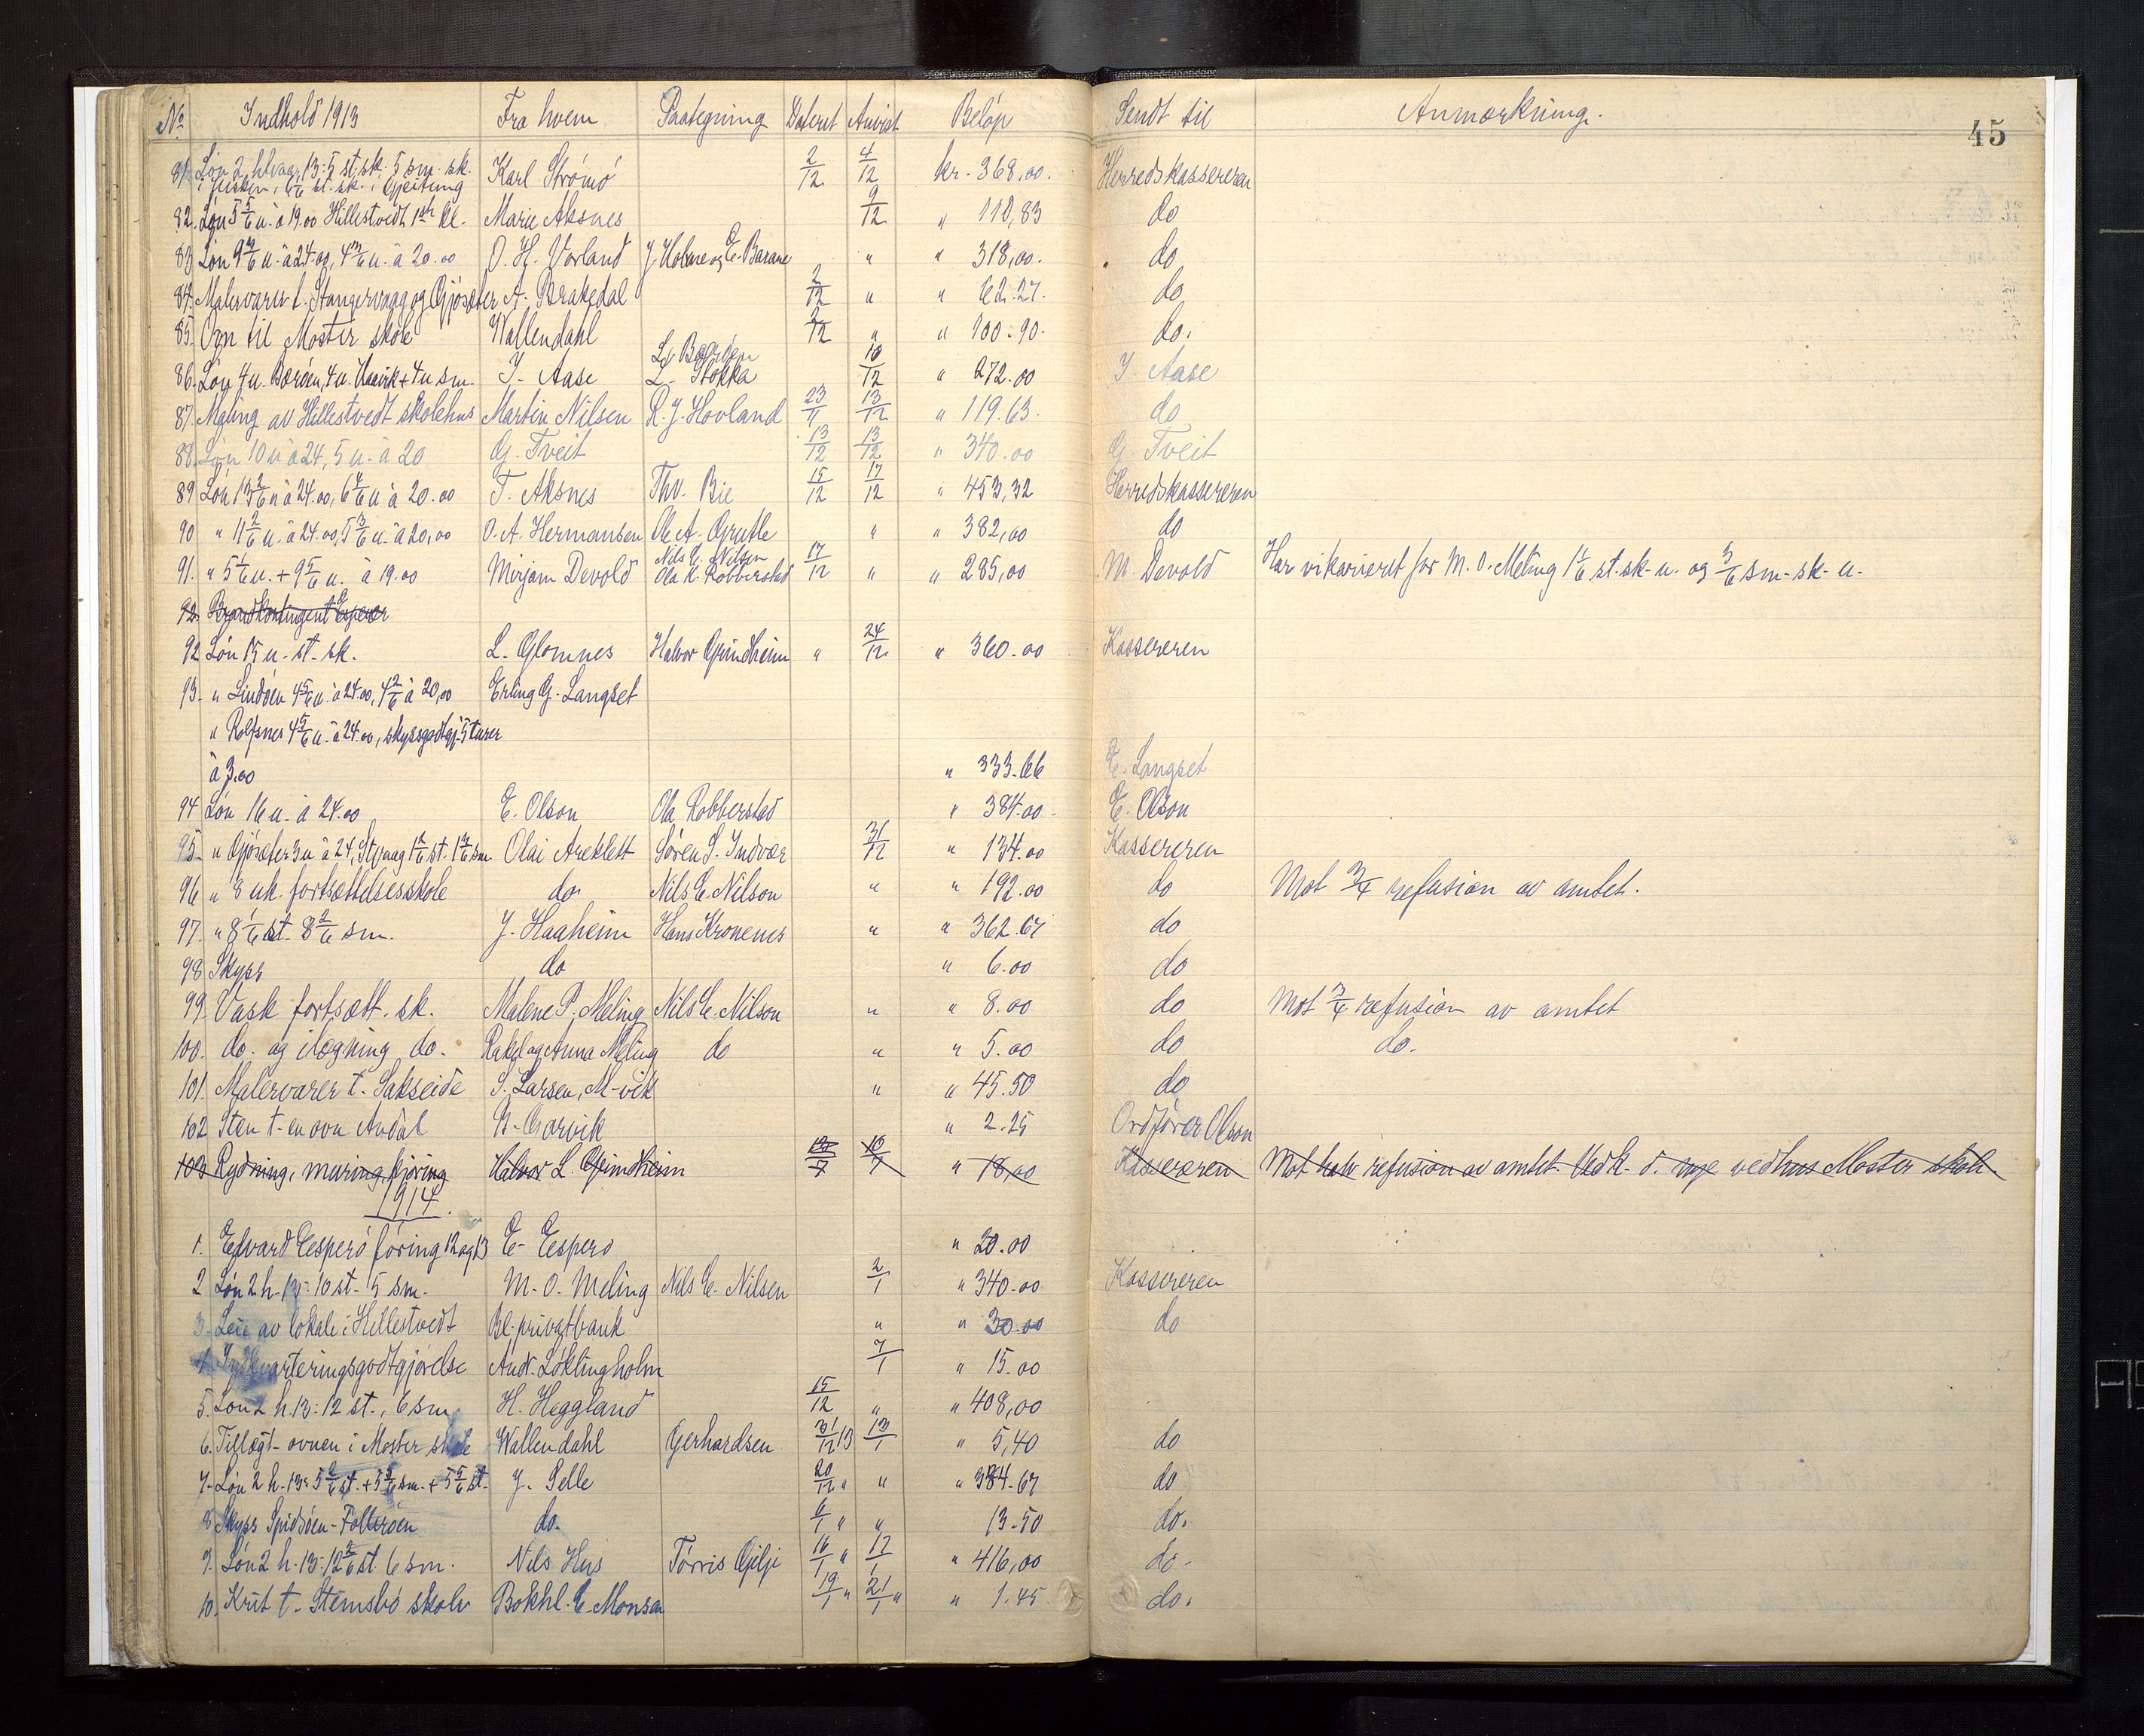 No Indhold 1913 Fra hvem Paategning Dateret Anvist Beløp Sendt til Anmærkning. 45
81. Løn 2 h 13: 5 st. sk. 5 sm. sk. Karl Strømø 2/12 4/12 kr. 368,00. Herredskassereren
st. sk. i Gjeitung
82. Løn 5 5/6 u. à 19.00 Hillestvedt 1ste kl. Marie Aksnes 9/12 " 110,83 do
83 Løn u. à 24.00, 4 3/6 u. à 20.00 O. H. Vorland J. Holme og E. Barane " " 318,00. do
84. Malervarer t. Stangervaag og Gjøsæter A. Brakedal 2/12 " " 62.27. do
85. Ovn til Moster skole Wallendahl 2/12 " " 100.90. do.
86. Løn 4 u. Børøen, 4 u. Haavik + 4 u sm. J. Aase L. Børøen L. Stokka 10/12 " 272.00 J. Aase
87. Maling av Hillestvedt skolehus Martin Nilsen R. J. Hovland 23/11 13/12 " 119.63. do
88. Løn 10 u à 24, 5 u. à 20 G. Tveit 13/12 13/12 " 340.00 G. Tveit
89 Løn 13 2/6 u à 24.00, 6 4/6 u à 20.00 T. Aksnes Thv. Bie 15/12 17/12 " 453,32 Herredskassereren
90 " 11 2/6 u. à 24.00, 5 3/6 u. à 20,00 O. A. Hermansen Ole A. Grutle " " 382,00 do
91. " 5 1/6 u. + 9 5/6 u. à 19.00 Mirjam Devold Nils E. Nilsen Ola K. Robberstad 17/12 " " 285,00 M. Devold Har vikarieret for M. O. Meling 1 1/6 st. sk. u. og 5/6 sm. sk. u.
92. Brandkontingent Espevær
92 Løn 15 u. st. sk. L. Glomnes Halvor Grindheim " 24/12 " 360.00 Kassereren
93. " Lindøen 4 5/6 u. à 24.00, 4 2/6 à 20,00 Erling G. Langset
" Rolfsnes 4 5/6 u. à 24.00, skyssgodtgj. 5 turer
à 3.00 " 333.66 E. Langset
94 Løn 16 u. à 24.00 E. Olson Ola Robberstad " 384.00 E. Olson
95. " Gjøsæter 3 u à 24, Stgvaag 1 3/6 st. 1 3/6 sm. Olai Areklett Søren S. Indvær 31/12 " 134.00 Kassereren
96 " 8 uk. fortsættelsesskole do. Nils E. Nilson " " 192.00 do Mot 3/4 refusion av amtet.
97. " 8 1/6 st. 8 2/6 sm. J. Haaheim Hans Kronenes " " 362.67 do
98 Skyss do " 6.00 do
99. Vask fortsætt. sk. Malene P. Meling Nils E. Nilson " " 8.00 do Mot 3/4 refusion av amtet
100. do. og ilægning do. Rakel og Anna Meling do " " 5.00 do do.
101. Malervarer t. Sakseide S. Larsen, M-vik " " 45.50 do
102 Sten t. en ovn Andal N. Gorvik " 2.25 Ordfører Olson
103 Rydning, muring, kjøring Halvor L. Grindheim " 18,00 Kassereren Mot halv refusion av amtet. Ved k. d. nye vedhus Moster skole
1914.
1. Edvard Espero føring 12 og 13 E. Espero " 20.00
2 Løn 2 h. 13: 10 st. 5 sm. M. O. Meling Nils E. Nilsen 2/1 " 340.00 Kassereren
3. Leie av lokale i Hillestvedt Bl. privatbank " " 30.00 do
4. Indkvarteringsgodtgjørelse Andr. Løklingholm 7/1 " 15.00
5. Løn 2 h. 13: 12 st., 6 sm. H. Heggland 15/12 " " 408,00
6. Tillægt. ovnen i Moster skole Wallendahl Gerhardsen 31/12 13 13/1 " 5,40 do
7. Løn 2 h. 13: 5 2/6 st. + 5 3/6 sm. + 5 5/6 st. J. Selle 20/12 " " " 384.67 do
8 Skyss Spidsøen - Follerøen do. 6/1 " " 13.50 do.
9. Løn 2 h. 13: 12 2/6 st. 6 sm. Nils Hus Tørris Gilje 16/1 " 17/1 " 416,00 do.
10. Krit t. Stemsbø skole Bokhl. E. Monsen 19/1 " 21/1 " " 1.45 do.